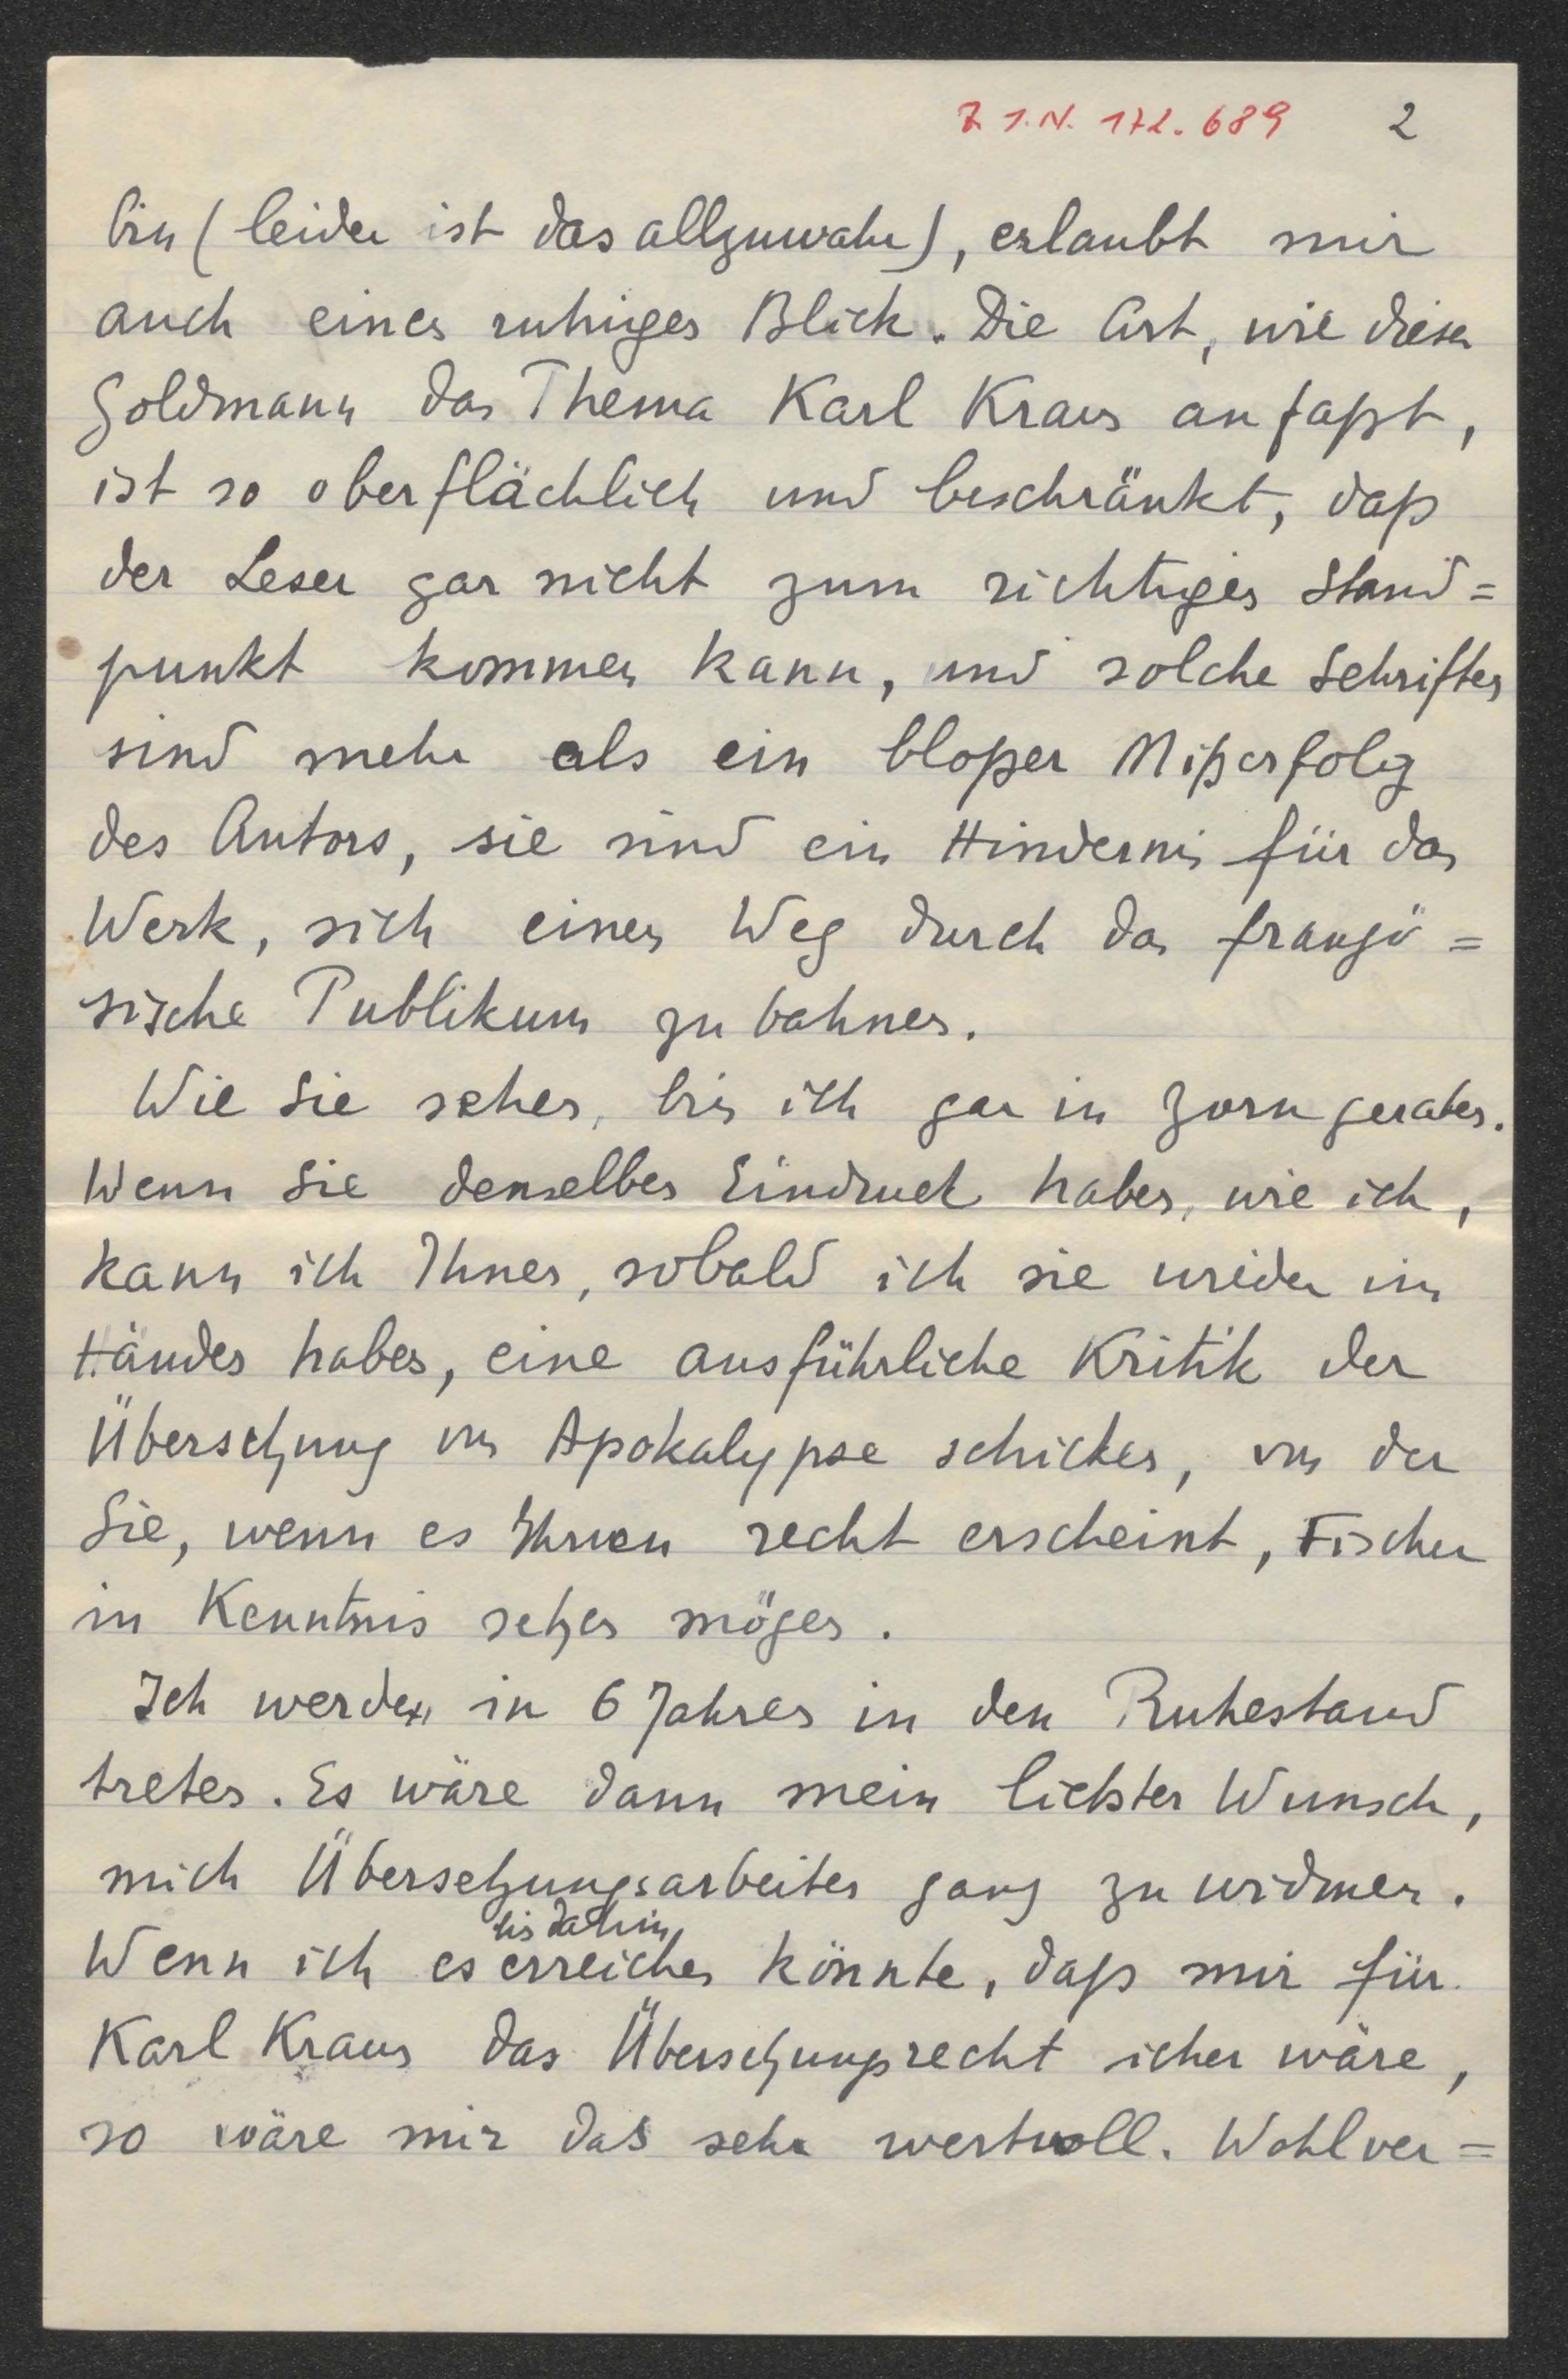 Z I.N. 172.689 2
bin (leider ist das allzuwahr), erlaubt mir
auch einen ruhigen Blick. Die Art, wie dieser
Goldmann das Thema Karl Kraus anfaßt,
ist so oberflächlich und beschränkt, daß
der Leser gar nicht zum richtigen Stand=
punkt kommen kann, und solche Schriften
sind mehr als ein bloßer Mißerfolg
des Autors, sie sind ein Hindernis für das
Werk, sich einen Weg durch das franzö=
sische Publikum zu bahnen.
Wie Sie sehen, bin ich gar in Zorn geraten.
Wenn Sie denselben Eindruck haben, wie ich,
kann ich Ihnen, sobald ich sie wieder in
Händen haben, eine ausführliche Kritik der
Übersetzung von Apokalypse schicken, von der
Sie, wenn es Ihnen recht erscheint, Fischer
in Kenntnis setzen mögen.
Ich werde in 6 Jahren in den Ruhestand
treten. Es wäre dann mein liebster Wunsch,
mich Übersetzungsarbeiten ganz zu widmen.
bis dahin
Wenn ich es erreichen könnte, daß mir für
Karl Kraus das Übersetzungsrecht sicher wäre,
so wäre mir das sehr wertvoll. Wohlver=